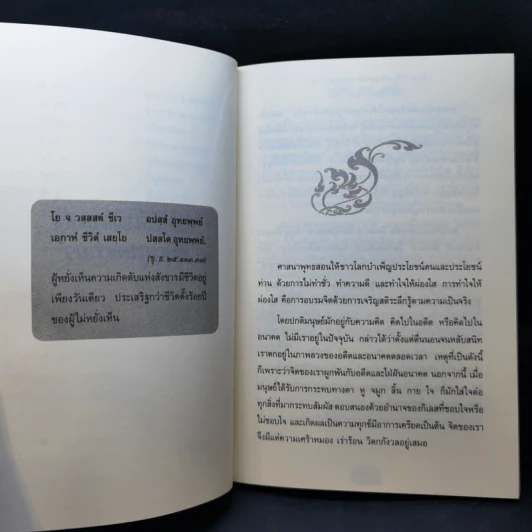 โย จ วสฺสสตํ ชีเว อปสฺสํ อุทยพฺพยํ
เอกาหํ ชีวิตํ เสยฺโย ปสฺสโต อุทยพฺพยํ.
(ขุ. ธ. ๒๕.๑๑๓.๓๐)
ผู้หยั่งเห็นความเกิดดับแห่งสังขารมีชีวิตอยู่
เพียงวันเดียว ประเสริฐกว่าชีวิตตั้งร้อยปี
ของผู้ไม่หยั่งเห็น
ศาสนาพุทธสอนให้ชาวโลกบำเพ็ญประโยชน์ตนและประโยชน์
ท่าน ด้วยการไม่ทำชั่ว ทำความดี และทำใจให้ผ่องใส การทำใจให้
ผ่องใส คือการอบรมจิตด้วยการเจริญสติระลึกรู้ตามความเป็นจริง
โดยปกติมนุษย์มักอยู่กับความคิด คิดไปในอดีต หรือคิดไปใน
อนาคต ไม่มีเราอยู่ในปัจจุบัน กล่าวได้ว่าตั้งแต่ตื่นนอนจนหลับสนิท
เราตกอยู่ในภาพลวงของอดีตและอนาคตตลอดเวลา เหตุที่เป็นดังนี้
ก็เพราะว่าจิตของเราผูกพันกับอดีตและใฝ่ฝันอนาคต นอกจากนี้ เมื่อ
มนุษย์ได้รับการกระทบทางตา หู จมูก ลิ้น กาย ใจ ก็มักใส่ใจต่อ
ทุกสิ่งที่มากระทบสัมผัส ตอบสนองด้วยอำนาจของกิเลสที่ชอบใจหรือ
ไม่ชอบใจ และเกิดผลเป็นความทุกข์มีอาการเครียดเป็นต้น จิตของเรา
จึงมีแต่ความเศร้าหมอง เร่าร้อน วิตกกังวลอยู่เสมอ